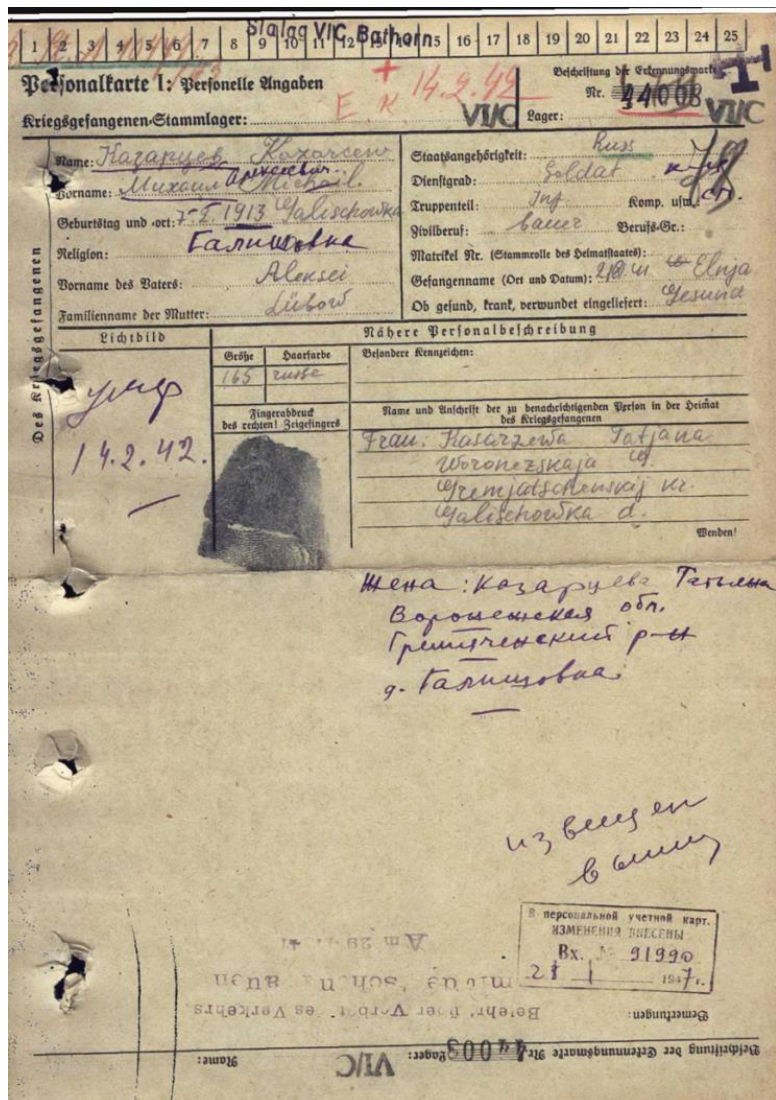 Stalag VI C Bathorn
1 2 3 4 5 6 7 8 9 10 11 12 13 14 15 16 17 18 19 20 21 22 23 24 25
Personalkarte I: Personelle Angaben
Beschriftung der Erkennungsmarke
Nr.
Kriegsgefangenen-Stammlager: VI/C
Lager: VI/C
E. K 14.2.42
Des Kriegsgefangenen
Name: Казарцев
Vorname: Михаил Алексеевич Michail
Geburtstag und -ort: 1913 Galischowka
Галишовка
Religion:
Vorname des Vaters: Aleksei
Familienname der Mutter: Lübow
Staatsangehörigkeit: Russ
Dienstgrad: Soldat
Truppenteil: Inf Komp. usw.:
Zivilberuf: bauer Berufs-Gr.:
Matrikel Nr. (Stammrolle des Heimatstaates):
Gefangenname (Ort und Datum): Elnja
Ob gesund, krank, verwundet eingeliefert: Gesund
78
Lichtbild
умер
14.2.42.
Nähere Personalbeschreibung
Größe Haarfarbe Besondere Kennzeichen:
165
Fingerabdruck
des rechten! Zeigefingers
Name und Anschrift der zu benachrichtigenden Person in der Heimat
des Kriegsgefangenen
Frau: Kasarzewa Tatjana
Woronezskaja G.
Gremjatschenskij
Galischowka d.
Wenden!
Жена: Казарцева Татьяна
Воронежская обл.
Гремяченский р-н
д. Галишовка
извещен
В персональной учетной карт.
ИЗМЕНЕНИЯ ВНЕСЕНЫ
Вх. № 91990
194 г.
Am
Bemerkungen:
Beschriftung der Erkennungsmarke Nr. Lager: VI/C Name: